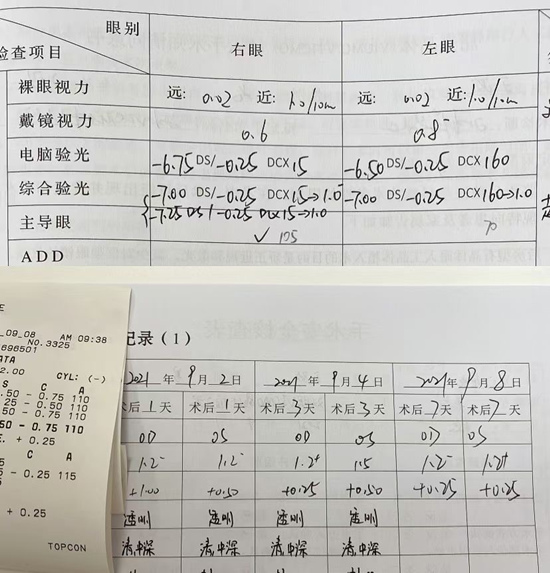 眼别
检查项目 右眼 左眼
裸眼视力 远: 0.02 近: 1.0/10cm 远: 0.02 近: 1.0/10cm
戴镜视力 0.6 0.8⁻
电脑验光 -6.75 DS/-0.25 DCX 15 -6.50 DS/-0.25 DCX 160
综合验光 -7.00 DS/-0.25 DCX 15→1.0⁻ -7.00 DS/-0.25 DCX 160→1.0
-7.25 DS/-0.25 DCX 15→1.0
主导眼 ✓
ADD
记录(1)
2021年9月2日 2021年9月4日 2021年9月8日
术后1天 术后1天 术后3天 术后3天 术后7天 术后7天
OD OS OD OS OD OS
1.2⁻ 1.2⁻ 1.2⁺ 1.5 1.2⁻ 1.2⁺
+1.00 +0.50 +0.25 +0.50 +0.25 +0.25
透明 透明 透明 透明
清,中深 清,中深 清,中深 清,中深
E
_09_08 AM 09:38
696501 No.3325
ATA
2.00 CYL: (-)
S C A
.50 - 0.75 110
.25 - 0.50 110
.50 - 0.75 110
50 - 0.75 110
E. + 0.25
C A
5 - 0.25 115
+ 0.25
TOPCON